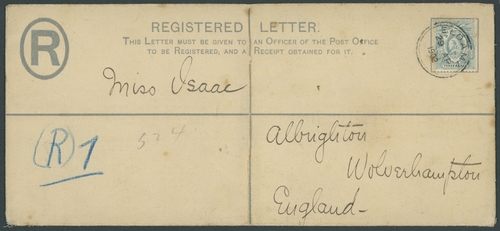 R
REGISTERED LETTER.
THIS LETTER MUST BE GIVEN TO AN OFFICER OF THE POST OFFICE
TO BE REGISTERED, AND A RECEIPT OBTAINED FOR IT.
Miss Isaac
(R) 1
524
Albrighton
Wolverhampton
England